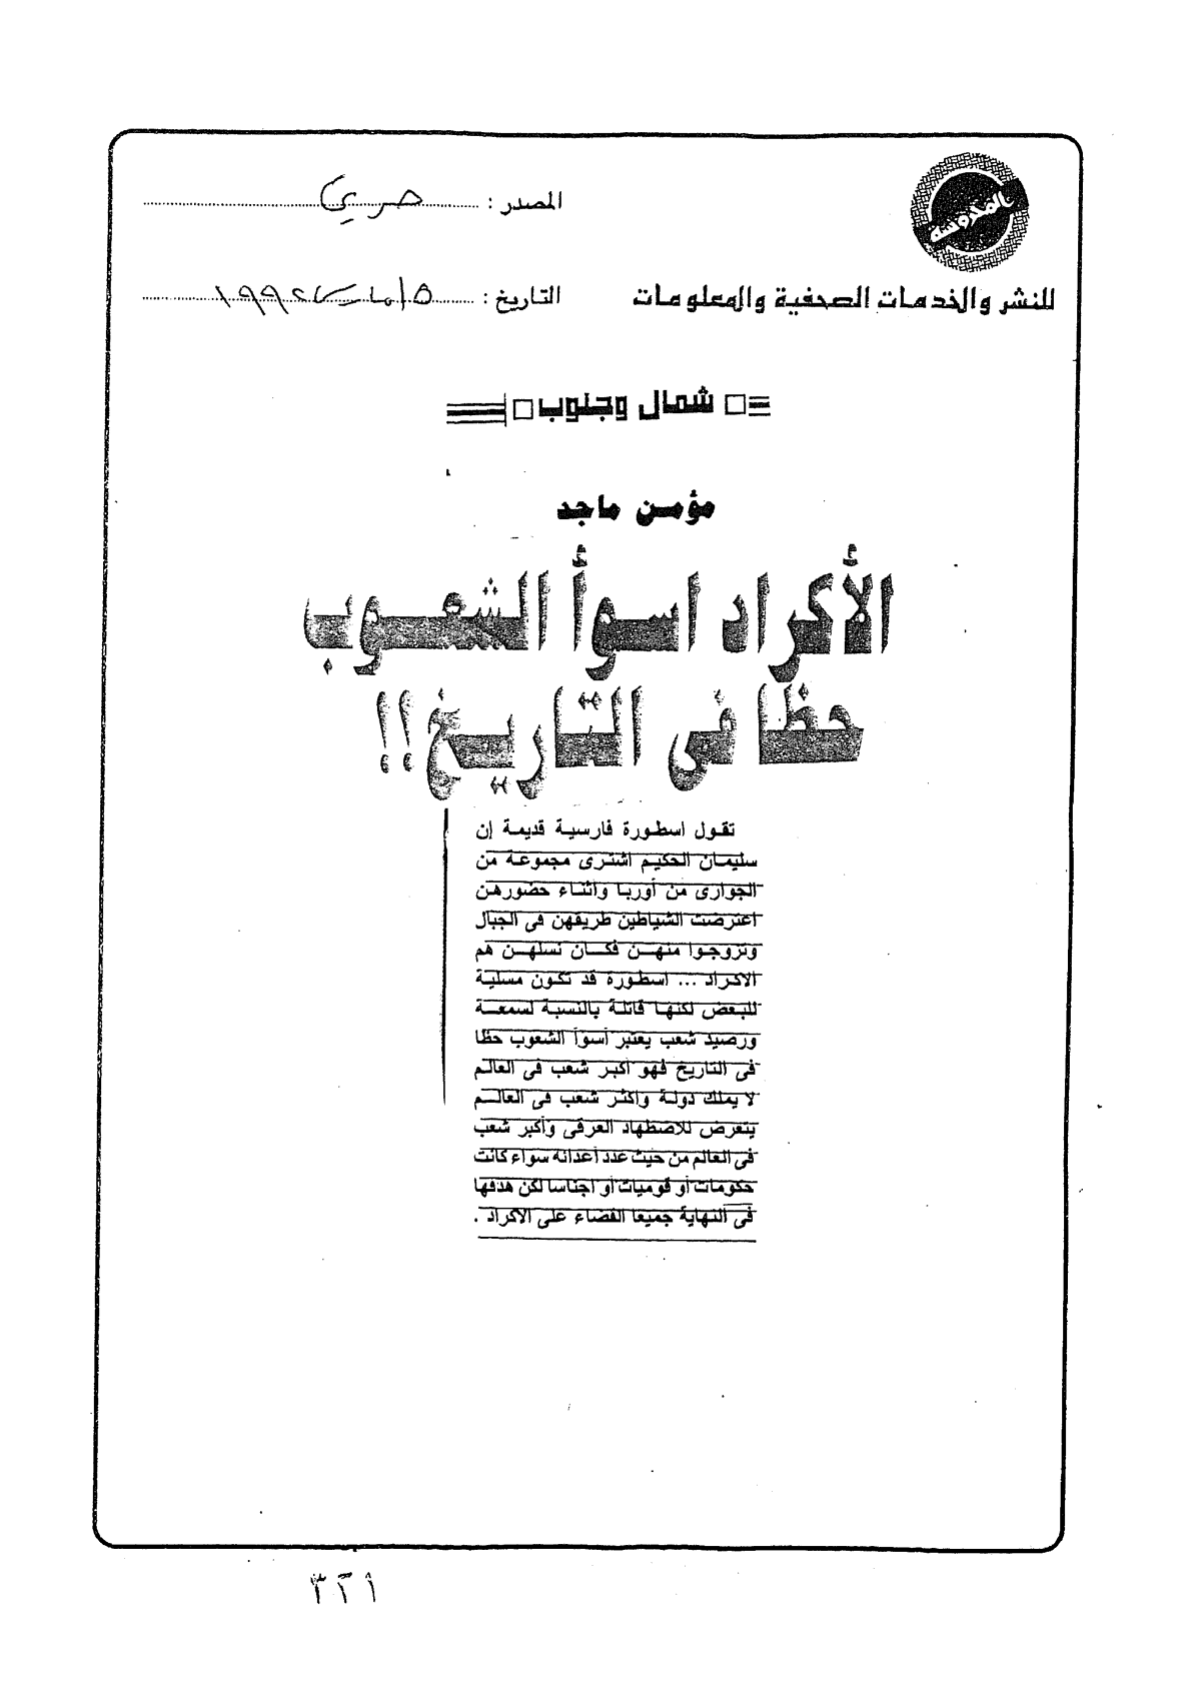 المصدر : حريتي
التاريخ : ٥ مارس ١٩٩٢
للنشر والخدمات الصحفية والمعلومات
شمال وجنوب
مؤمن ماجد
الأكراد اسوأ الشعوب
حظا فى التاريخ !!
تقول اسطورة فارسية قديمة إن
سليمان الحكيم اشترى مجموعة من
الجوارى من أوربا واثناء حضورهن
اعترضت الشياطين طريقهن فى الجبال
وتزوجوا منهن فكان نسلهن هم
الاكراد ... اسطورة قد تكون مسلية
للبعض لكنها قاتلة بالنسبة لسمعة
ورصيد شعب يعتبر أسوأ الشعوب حظا
فى التاريخ فهو أكبر شعب فى العالم
لا يملك دولة وأكثر شعب فى العالم
يتعرض للاضطهاد العرقى وأكبر شعب
فى العالم من حيث عدد أعدائه سواء كانت
حكومات أو قوميات أو اجناسا لكن هدفها
فى النهاية جميعا القضاء على الاكراد .